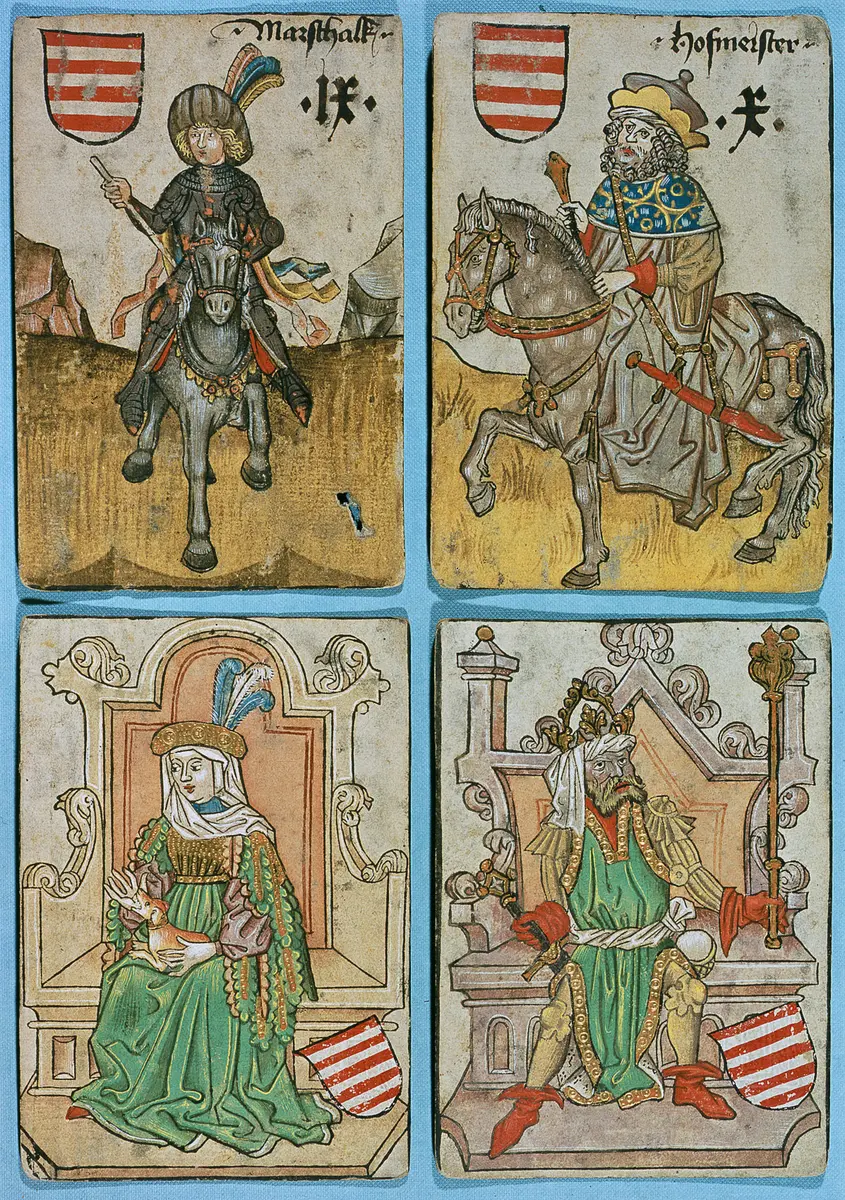 Marschalk
·IX·
Hofmeister
·X·